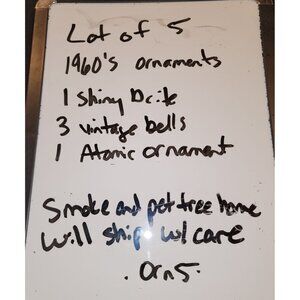 Lot of 5
1960's ornaments
1 Shiny Brite
3 vintage bells
1 Atomic ornament
Smoke and pet free home
will ship w/ care
. Orn5.